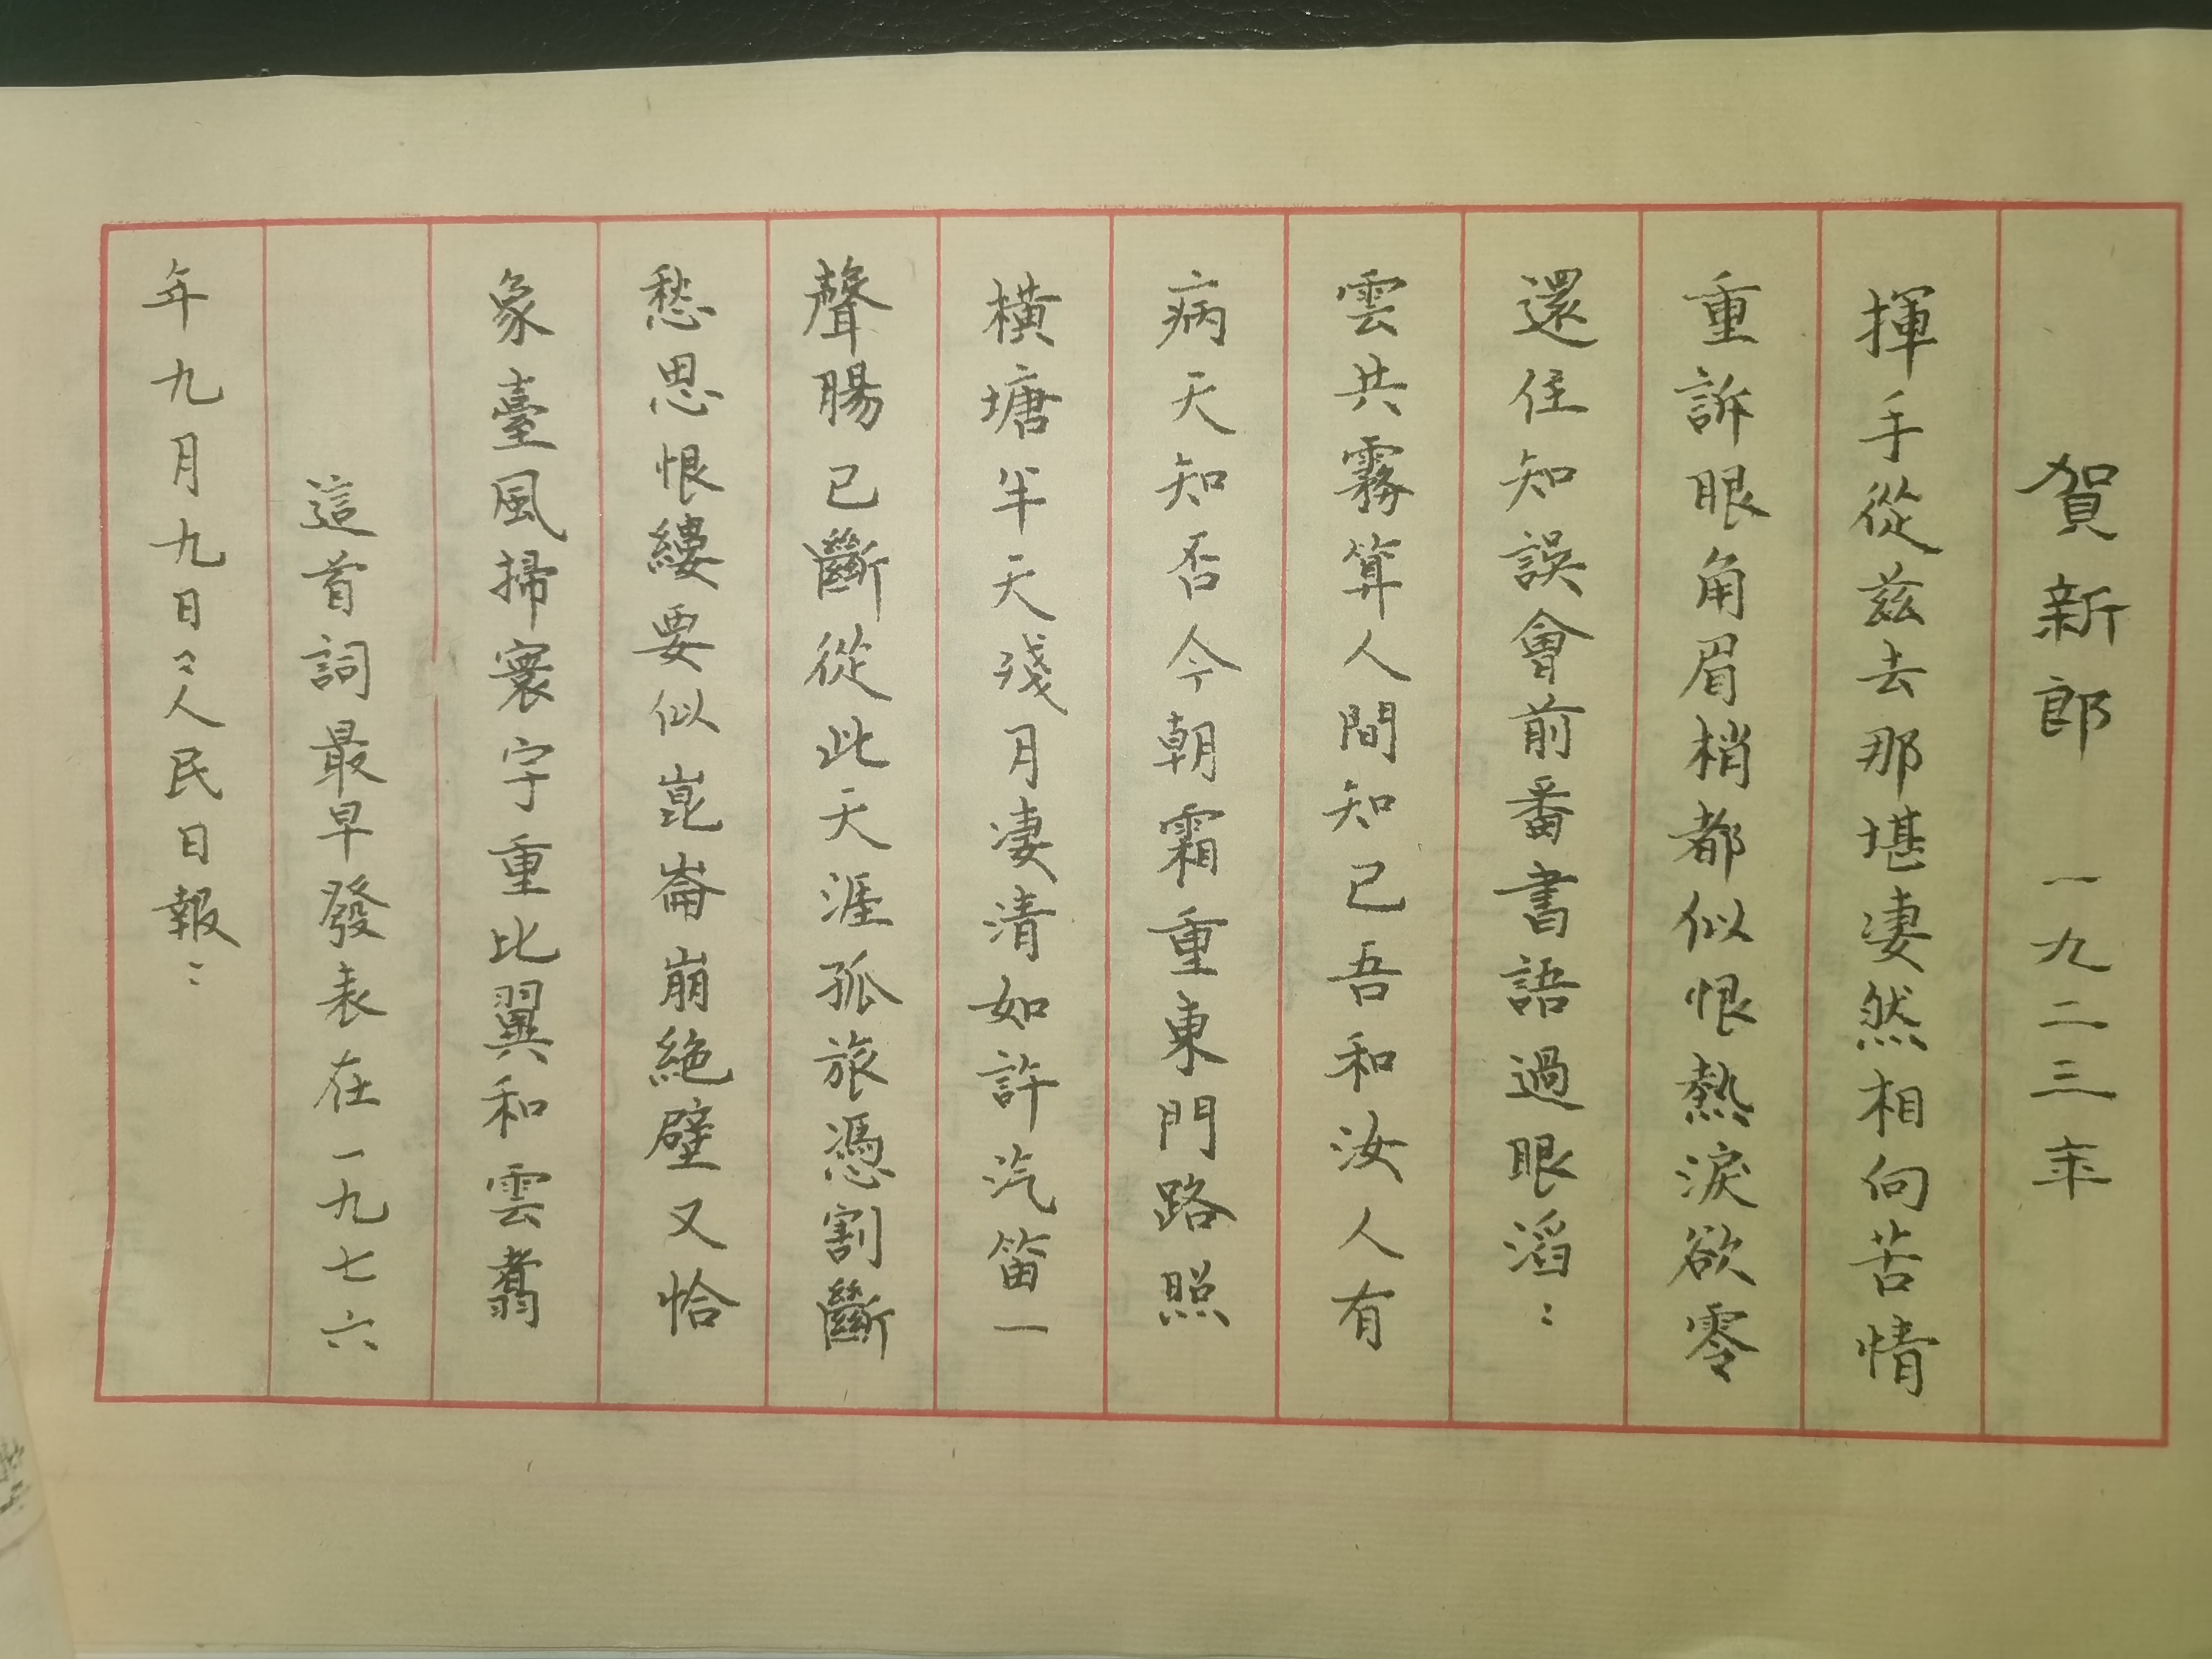 賀新郎 一九二三年
揮手從茲去那堪凄然相向苦情
重訴眼角眉梢都似恨熱淚欲零
還住知誤會前番書語過眼滔:
雲共霧算人間知己吾和汝人有
病天知否今朝霜重東門路照
橫塘半天殘月凄清如許汽笛一
聲腸已斷從此天涯孤旅憑割斷
愁思恨縷要似崑崙崩絕壁又恰
象臺風掃寰宇重比翼和雲翥
這首詞最早發表在一九七六
年九月九日:人民日報: